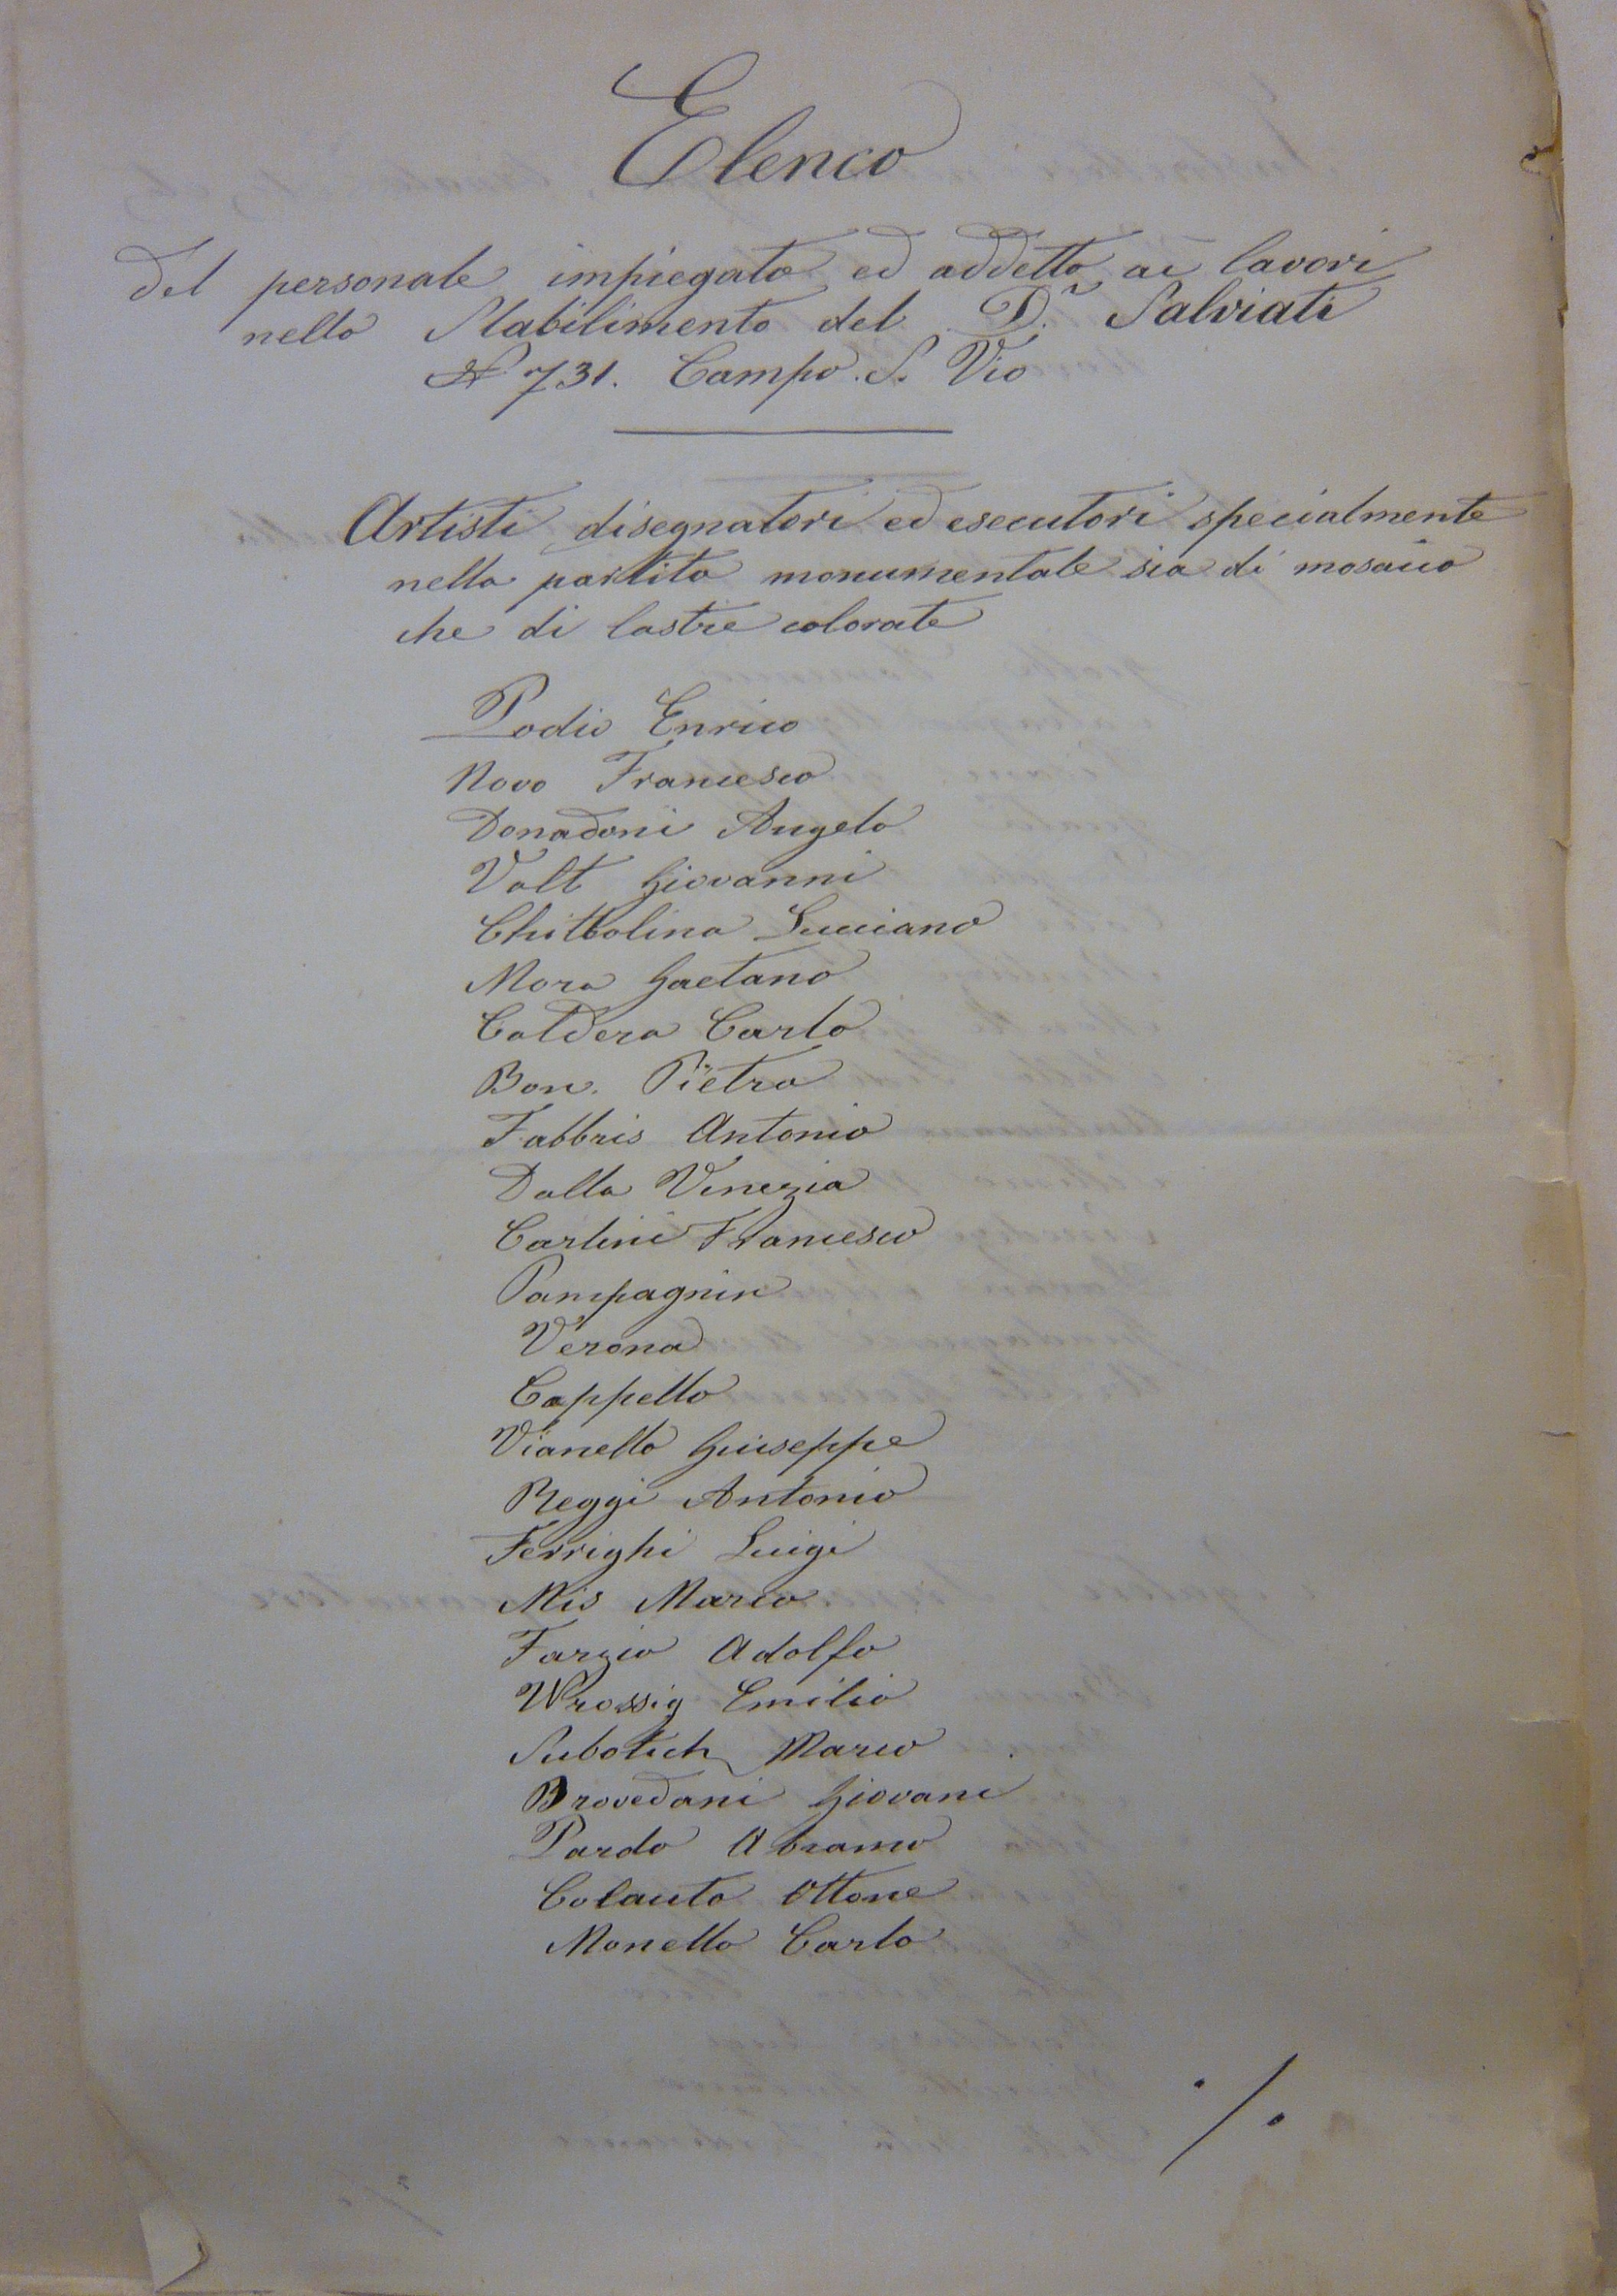 Elenco
del personale impiegato ed addetto ai lavori
nello Stabilimento del D.r Salviati
N 731. Campo. S. Vio
Artisti disegnatori ed esecutori specialmente
nella partita monumentale sia di mosaico
che di lastre colorate
Podio Enrico
Novo Francesco
Donadoni Angelo
Valt Giovanni
Luciano
Mora Gaetano
Caldera Carlo
Bon. Pietro
Fabbris Antonio
Dalla Venezia
Carlini Francesco
Pampagnin
Verona
Cappello
Vianello Giuseppe
Reggi Antonio
Ferrighi Luigi
Mis Marco
Farzio Adolfo
Wrossig Emilio
Subotich Marco
Brovedani Giovani
Pardo Abramo
Colauto Ottone
Monello Carlo
./.